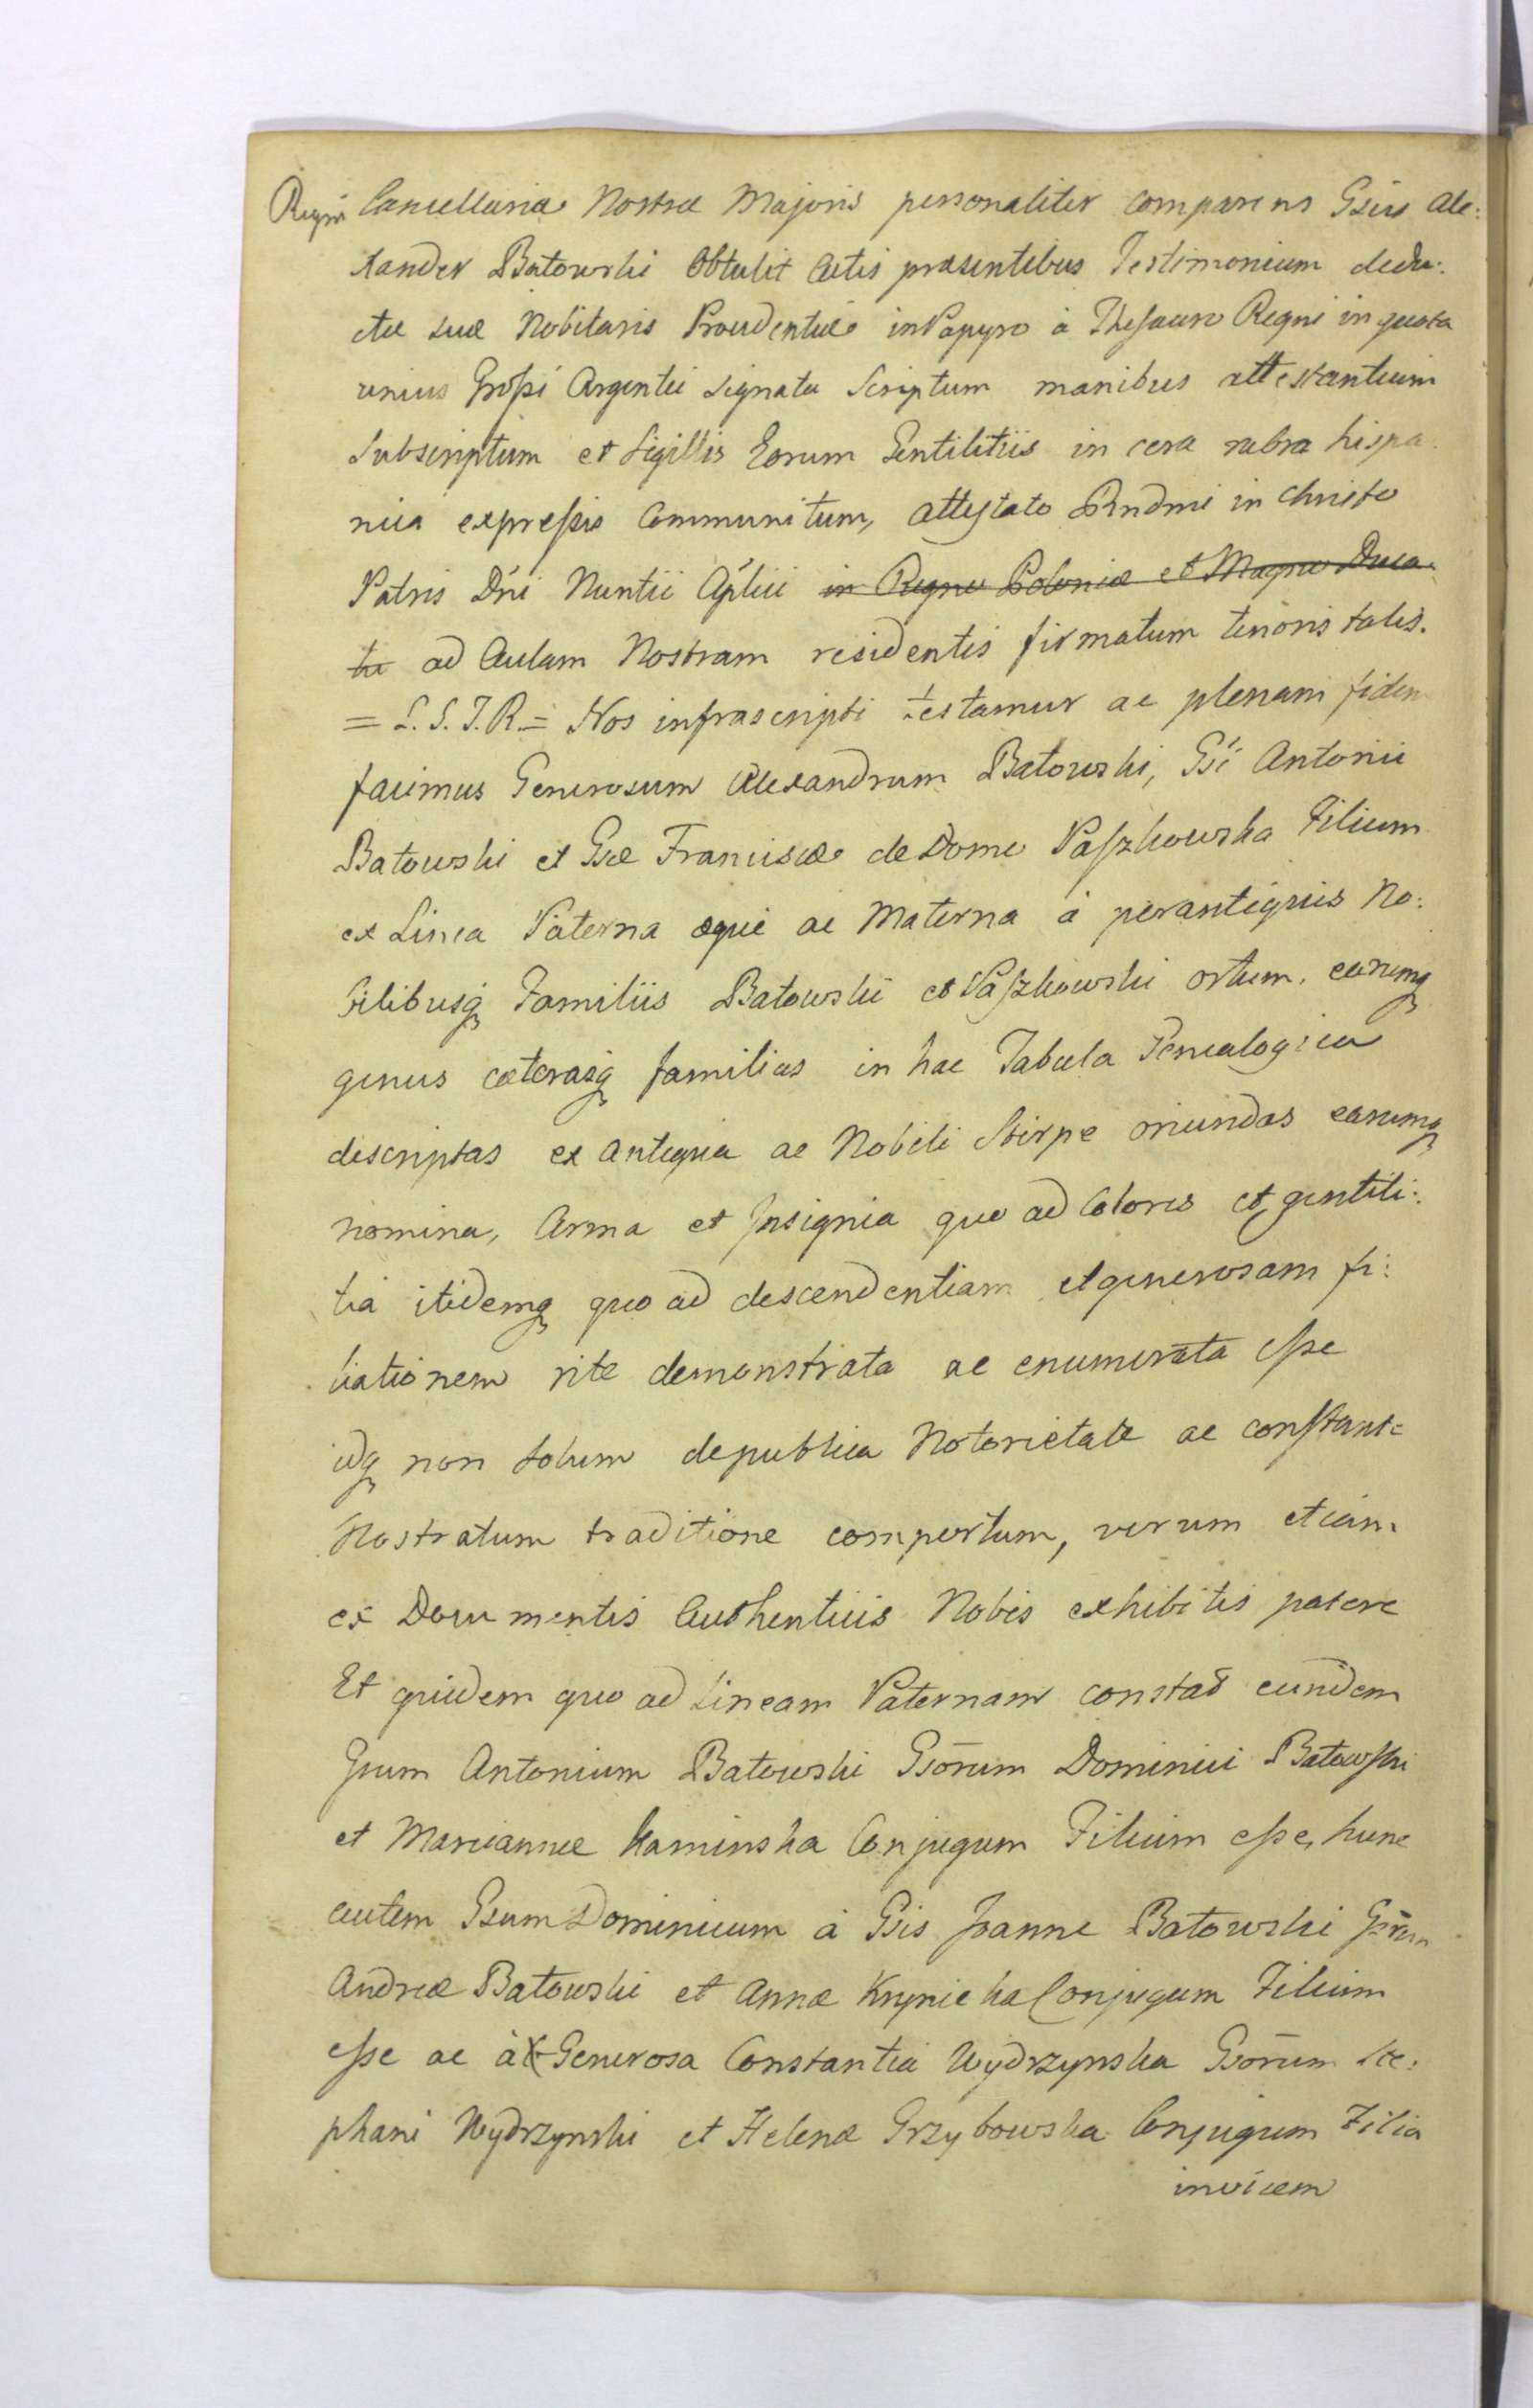 Regni Cancellariæ Nostræ Majoris personaliter comparens Gsus Ale:
xander Batowski Obtulit Actis præsentibus Testimonium dedu:
ctæ suæ Nobitaris Proudentiæ in Papyro à Thesauro Regni in quota
unius Großi Argentei signata Scriptum manibus attestantium
Subscriptum et Sigillis Eorum Gentilitiis in cera rubra hispa
nica expreßis Communitum, attestato Rndmi in Christo
Patris Dni Nuntii Aplici in Regno Poloniæ et Magno Duca
tu ad Aulam Nostram residentis firmatum tenoris talis.
= L. S. J. R. = Nos infrascripti testamur ac plenam fidem
facimus Generosum Alexandrum Batowski, Gsi Antonii
Batowski et Gsæ Franciscæ de Domo Paszkowska Filium
ex Linea Paterna æque ac Materna à perantiquis No:
bilibusq Familiis Batowski et Paszkowski ortum, earumq
genus cæterasq familias in hac Tabula Genealogica
descriptas ex antiqua ac Nobili Stirpe oriundas earumq
nomina, Arma et Insignia quo ad Colores et gentili:
tia itidemq quo ad descendentiam et generosam fi:
liationem rite demonstrata ac enumerata eße
idq non solum de publica Notorietate ac constante
Nostratum traditione compertum, verum etiam
ex Documentis Authenticis Nobis exhibitis patere
Et quidem quo ad Lineam Paternam constat eundem
Gsum Antonium Batowski Gsorum Dominici Batowski
et Mariannæ Kaminska Conjugum Filium eße, hunc
autem Gsum Dominicum à Gsis Joanne Batowski Gsrum
Andreæ Batowski et Annæ Krynicka Conjugum Filium
eße ac à Generosa Constantia Wydrzynska Gsorum Ste:
phani Wydrzynski et Helenæ Grzybowska Conjugum Filia
invicem